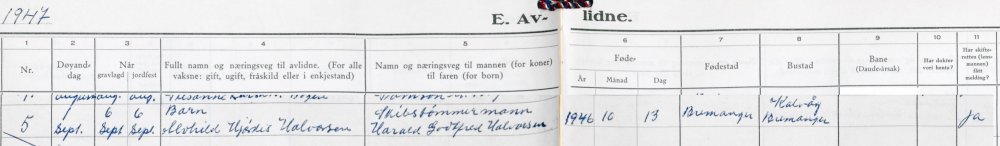 1947
E. Av- lidne.
1 2 3 4 5 6 7 8 9 10 11
Nr. Døyand-dag Når gravlagd jordfest Fullt namn og næringsveg til avlidne. (For alle vaksne: gift, ugift, fråskild eller i enkjestand) Namn og næringsveg til mannen (for koner) til faren (for born) Føde- År Månad Dag Fødestad Bustad Bane (Daude-årsak) Har dokter veri henta? Har skifte-retten (lens-mannen) fått melding?
august aug. aug.
1 6 6 Barn Skibstømmermann Kalvåg
5 Sept. Sept Sept. Alvhild Hjørdis Halvorsen Harald Godtfred Halvorsen 1946 10 13 Bremanger Bremanger ja